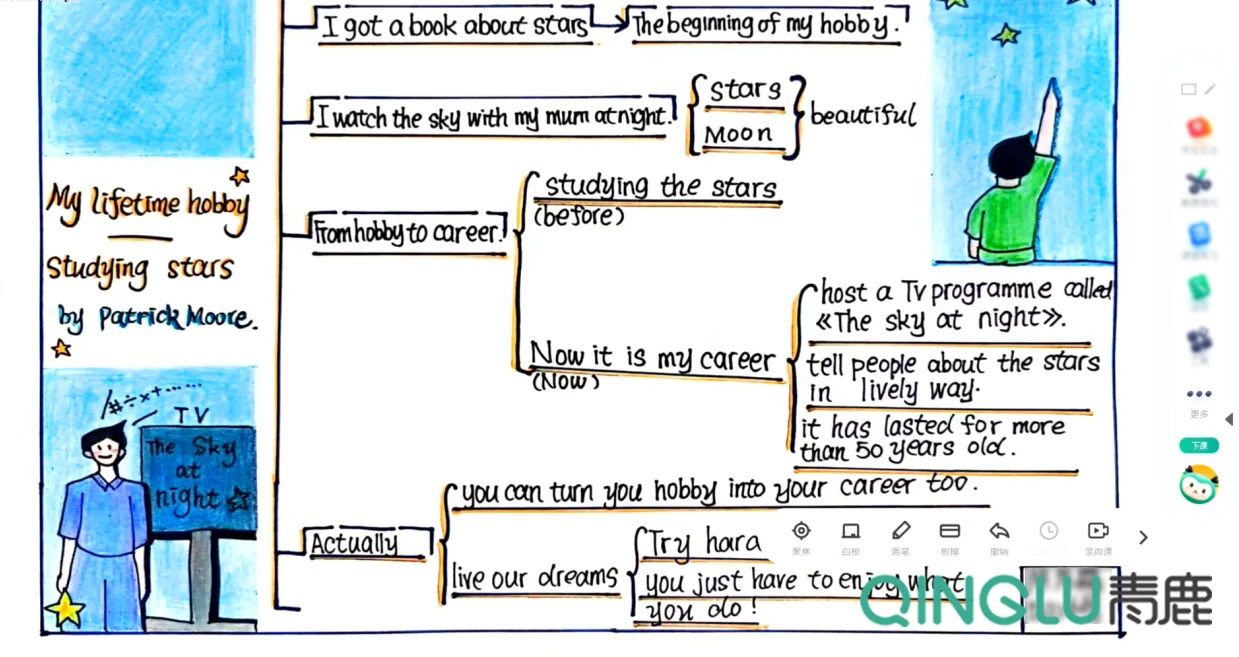 I got a book about stars
The beginning of my hobby.
I watch the sky with my mum at night.
Stars
Moon
beautiful
My lifetime hobby
Studying stars
by Patrick Moore.
From hobby to career.
studying the stars
(before)
Now it is my career
(Now)
host a Tv programme called
《The sky at night》.
tell people about the stars
in lively way.
it has lasted for more
than 50 years old.
/#÷×+······
TV
The Sky
at
night
Actually
you can turn you hobby into your career too.
live our dreams
Try hara
you just have to enjoy what
you do!
更多
下课
聚焦
白板
画笔
板擦
撤销
录微课
QINGLU青鹿